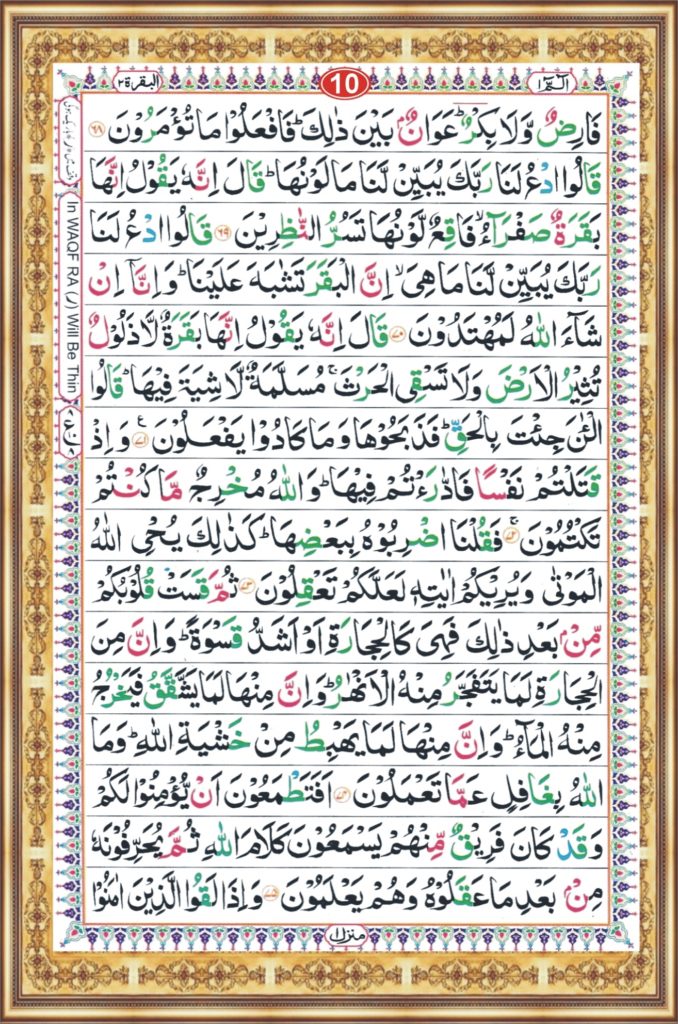 الٓمّٓ ١
10
البقرة ٢
فَارِضٌ وَّلَا بِكْرٌ ؕ عَوَانٌۢ بَيْنَ ذٰلِكَ ؕ فَافْعَلُوْا مَا تُؤْمَرُوْنَ ﴿٦٨﴾
قَالُوا ادْعُ لَنَا رَبَّكَ يُبَيِّنْ لَّنَا مَا لَوْنُهَا ؕ قَالَ اِنَّهٗ يَقُوْلُ اِنَّهَا
بَقَرَةٌ صَفْرَآءُ ۙ فَاقِعٌ لَّوْنُهَا تَسُرُّ النّٰظِرِيْنَ ﴿٦٩﴾ قَالُوا ادْعُ لَنَا
رَبَّكَ يُبَيِّنْ لَّنَا مَا هِيَ ۙ اِنَّ الْبَقَرَ تَشٰبَهَ عَلَيْنَا ؕ وَاِنَّاۤ اِنْ
شَآءَ اللّٰهُ لَمُهْتَدُوْنَ ﴿٧٠﴾ قَالَ اِنَّهٗ يَقُوْلُ اِنَّهَا بَقَرَةٌ لَّا ذَلُوْلٌ
تُثِيْرُ الْاَرْضَ وَلَا تَسْقِى الْحَرْثَ ۚ مُسَلَّمَةٌ لَّا شِيَةَ فِيْهَا ؕ قَالُوا
الْـٰٔنَ جِئْتَ بِالْحَقِّ ؕ فَذَبَحُوْهَا وَمَا كَادُوْا يَفْعَلُوْنَ ﴿٧١﴾ وَاِذْ
قَتَلْتُمْ نَفْسًا فَادّٰرَءْتُمْ فِيْهَا ؕ وَاللّٰهُ مُخْرِجٌ مَّا كُنْتُمْ
تَكْتُمُوْنَ ۚ ﴿٧٢﴾ فَقُلْنَا اضْرِبُوْهُ بِبَعْضِهَا ؕ كَذٰلِكَ يُحْىِ اللّٰهُ
الْمَوْتٰى وَيُرِيْكُمْ اٰيٰتِهٖ لَعَلَّكُمْ تَعْقِلُوْنَ ﴿٧٣﴾ ثُمَّ قَسَتْ قُلُوْبُكُمْ
مِّنْۢ بَعْدِ ذٰلِكَ فَهِىَ كَالْحِجَارَةِ اَوْ اَشَدُّ قَسْوَةً ؕ وَاِنَّ مِنَ
الْحِجَارَةِ لَمَا يَتَفَجَّرُ مِنْهُ الْاَنْهٰرُ ؕ وَاِنَّ مِنْهَا لَمَا يَشَّقَّقُ فَيَخْرُجُ
مِنْهُ الْمَآءُ ؕ وَاِنَّ مِنْهَا لَمَا يَهْبِطُ مِنْ خَشْيَةِ اللّٰهِ ؕ وَمَا
اللّٰهُ بِغَافِلٍ عَمَّا تَعْمَلُوْنَ ﴿٧٤﴾ اَفَتَطْمَعُوْنَ اَنْ يُّؤْمِنُوْا لَكُمْ
وَقَدْ كَانَ فَرِيْقٌ مِّنْهُمْ يَسْمَعُوْنَ كَلَامَ اللّٰهِ ثُمَّ يُحَرِّفُوْنَهٗ
مِنْۢ بَعْدِ مَا عَقَلُوْهُ وَهُمْ يَعْلَمُوْنَ ﴿٧٥﴾ وَاِذَا لَقُوا الَّذِيْنَ اٰمَنُوْا
منزل ١
In WAQF RA (ر) Will Be Thin